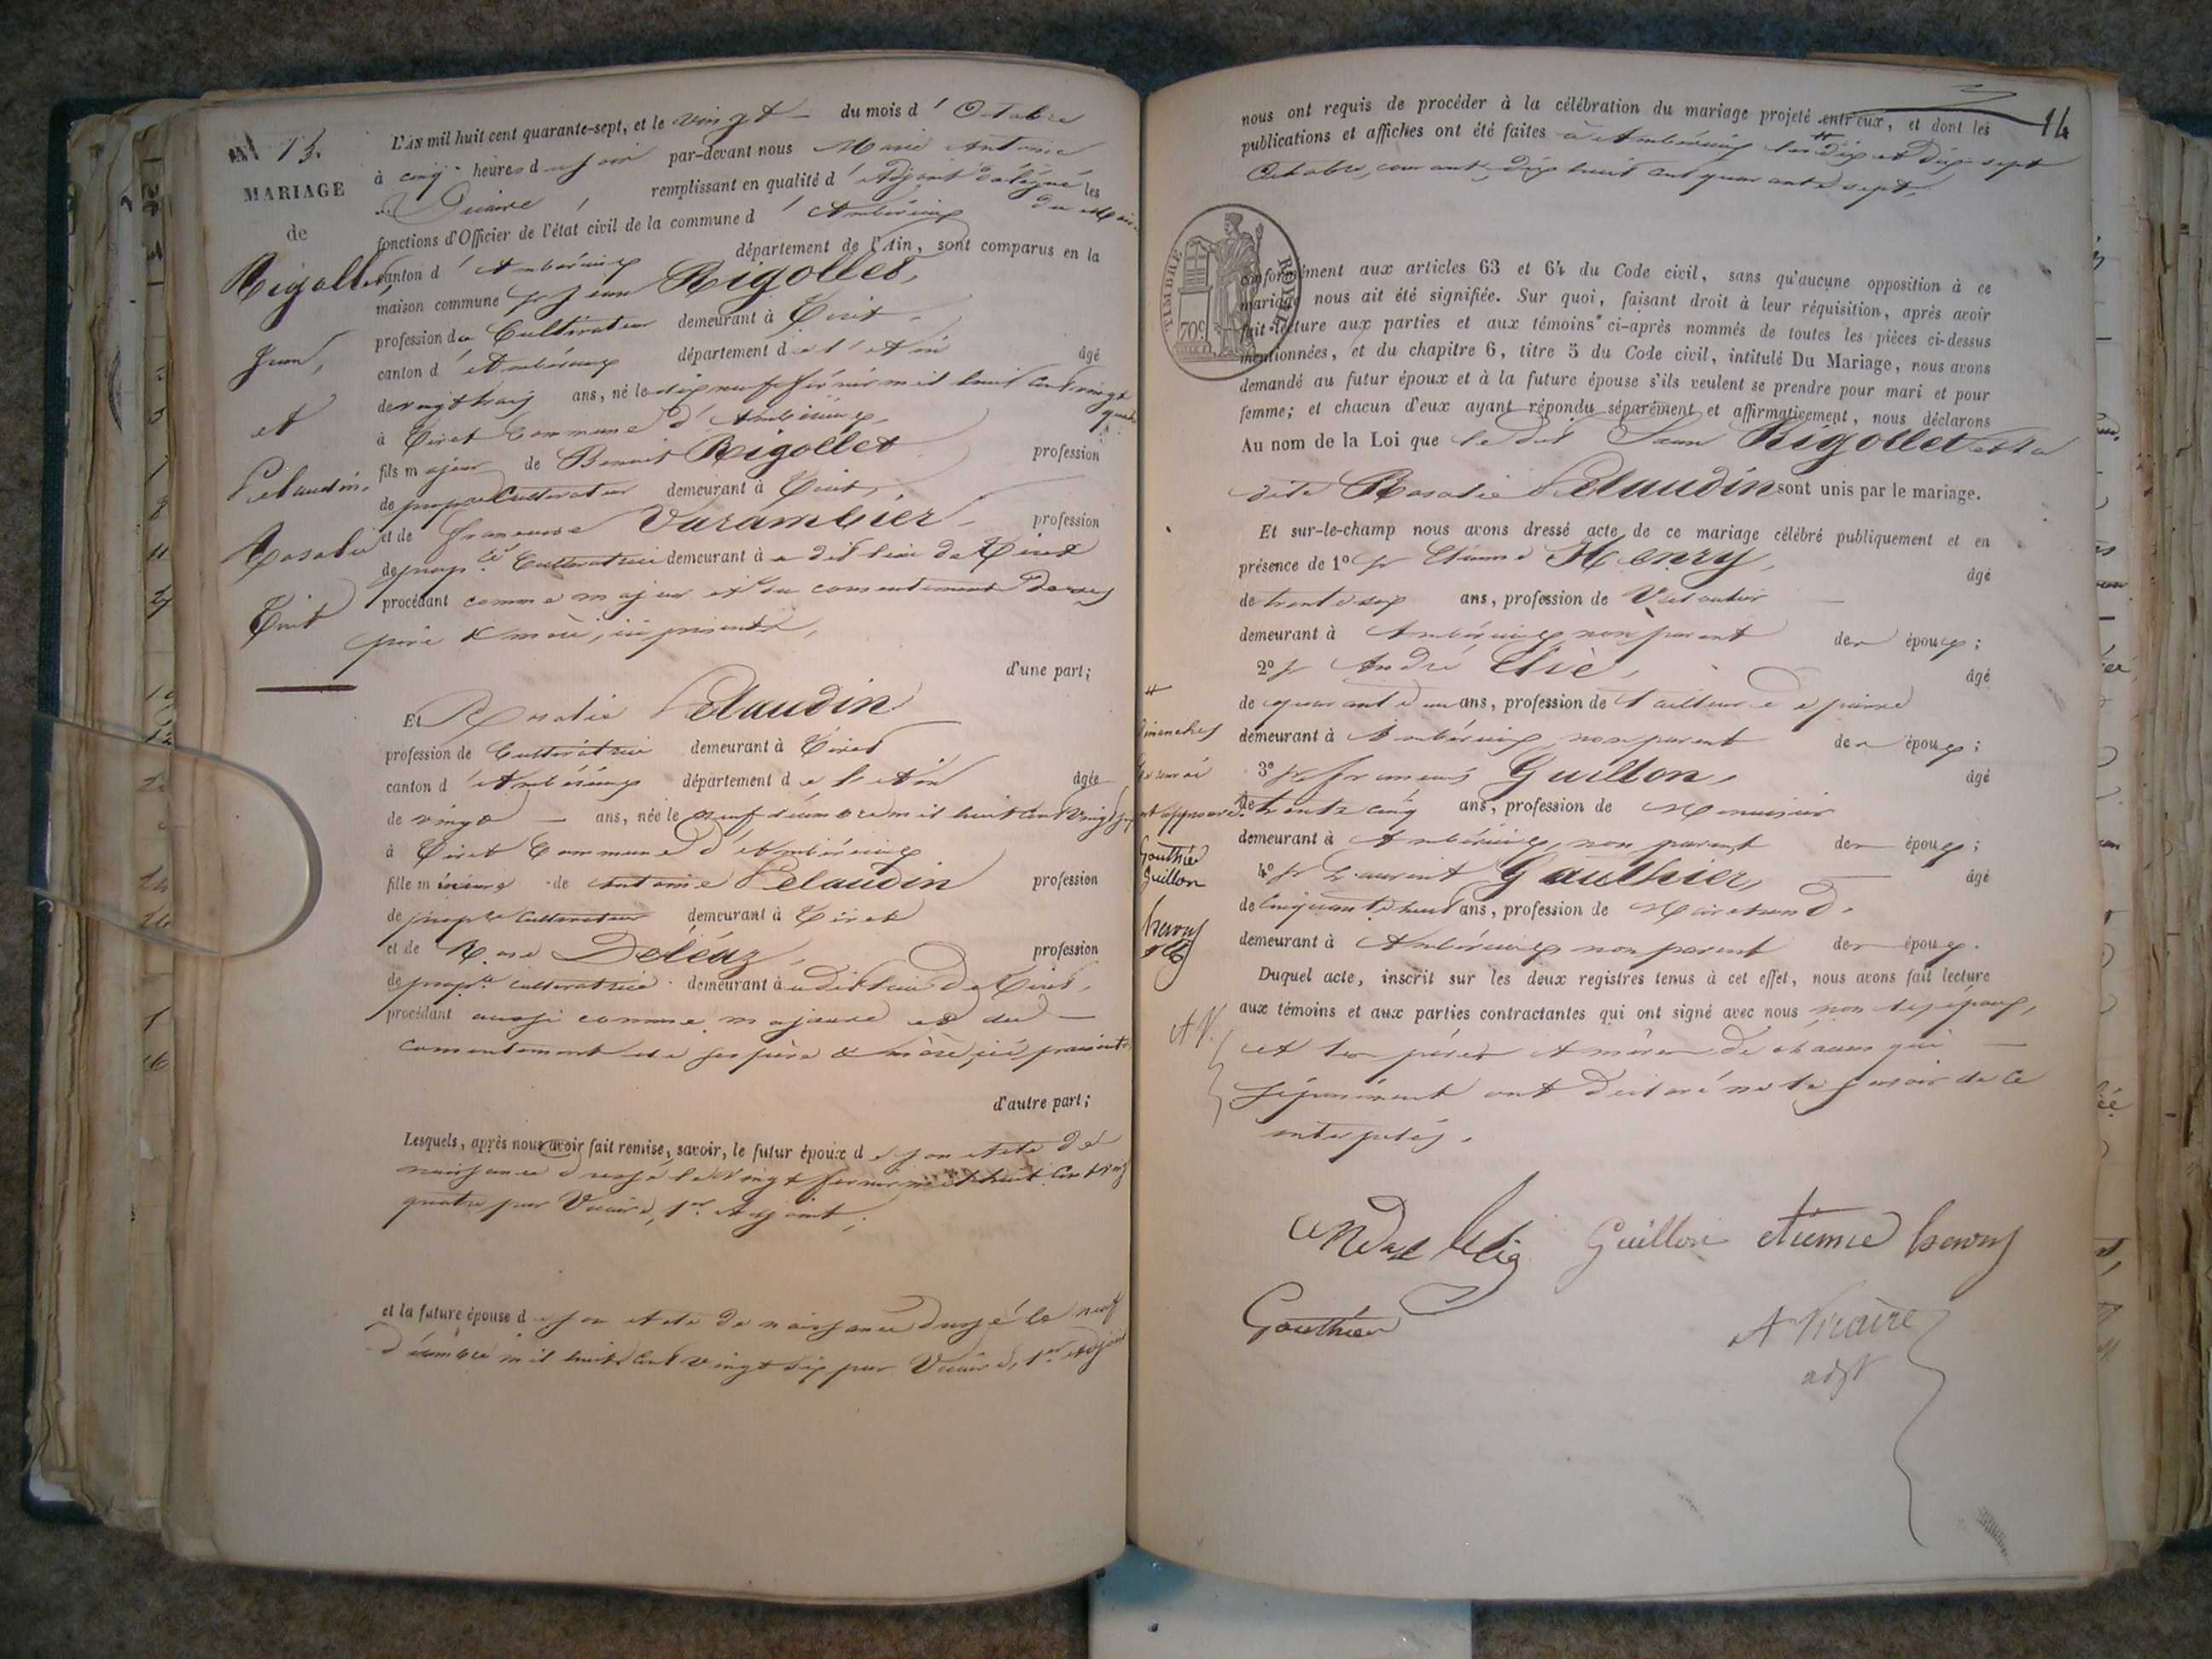 N° 13.
MARIAGE
de
Rigollet,
Jean,
et
Pelaudin,
Rosalie
Tiret
L'AN mil huit cent quarante-sept, et le vingt du mois d'Octobre
à cinq heures du soir par-devant nous Marie Antoine
Vicaire, remplissant en qualité d'Adjoint délégué du Maire les
fonctions d'Officier de l'état civil de la commune d'Ambérieux
canton d'Ambérieux département de l'Ain, sont comparus en la
maison commune Sr Jean Rigollet,
profession de Cultivateur demeurant à Tiret
canton d'Ambérieux département de l'Ain âgé
de vingt trois ans, né le dix neuf février mil huit cent vingt quatre
à Tiret Commune d'Ambérieux,
fils majeur de Benoit Rigollet profession
de propre Cultivateur demeurant à Tiret,
et de Françoise Varambier profession
de propre Cultivatrice demeurant à dit lieu de Tiret
procédant comme majeur et du consentement de ses
père & mère, ici présents,
d'une part;
Et Rosalie Pelaudin
profession de Cultivatrice demeurant à Tiret
canton d'Ambérieux département de l'Ain âgée
de vingt ans, née le neuf décembre mil huit cent vingt six
à Tiret Commune d'Ambérieux
fille mineure de Antoine Pelaudin profession
de propre Cultivateur demeurant à Tiret
et de Rose Deléaz, profession
de propre Cultivatrice demeurant à dit lieu de Tiret,
procédant aussi comme majeure et du
consentement de ses père & mère, ici présents
d'autre part;
Lesquels, après nous avoir fait remise, savoir, le futur époux de son Acte de
naissance dressé le vingt février mil huit cent vingt
quatre par Vicaire, 1er Adjoint;
et la future épouse de son Acte de naissance dressé le neuf
décembre mil huit cent vingt six par Vicaire, 1er Adjoint
14
nous ont requis de procéder à la célébration du mariage projeté entr'eux, et dont les
publications et affiches ont été faites à Ambérieux les dix et dix-sept
Octobre, courant, dix huit cent quarante sept,
TIMBRE ROYAL
70c
conformément aux articles 63 et 64 du Code civil, sans qu'aucune opposition à ce
mariage nous ait été signifiée. Sur quoi, faisant droit à leur réquisition, après avoir
fait lecture aux parties et aux témoins ci-après nommés de toutes les pièces ci-dessus
mentionnées, et du chapitre 6, titre 5 du Code civil, intitulé Du Mariage, nous avons
demandé au futur époux et à la future épouse s'ils veulent se prendre pour mari et pour
femme; et chacun d'eux ayant répondu séparément et affirmativement, nous déclarons
Au nom de la Loi que le dit Jean Rigollet et la
dite Rosalie Pelaudin sont unis par le mariage.
Et sur-le-champ nous avons dressé acte de ce mariage célébré publiquement et en
présence de 1° Sr Etienne Henry, âgé
de trente six ans, profession de
demeurant à Ambérieux non parent des époux;
2° Sr André Elie, âgé
de quarante un ans, profession de Tailleur de pierre
demeurant à Ambérieux, non parent des époux;
3° Sr François Guillon, âgé
de trente cinq ans, profession de Menuisier
demeurant à Ambérieux, non parent des époux;
4° Sr Laurent Gauthier, âgé
de cinquante huit ans, profession de Marchand,
demeurant à Ambérieux non parent des époux.
dimanches
Le renvoi
est approuvé.
Gouthier
Guillon
henry
Duquel acte, inscrit sur les deux registres tenus à cet effet, nous avons fait lecture
aux témoins et aux parties contractantes qui ont signé avec nous non les époux,
A V. et les pères & mères de chacun qui
séparément ont déclaré ne le savoir de ce
interpelés.
Guillon etienne henry
Gouthier
A Vicaire
adjt